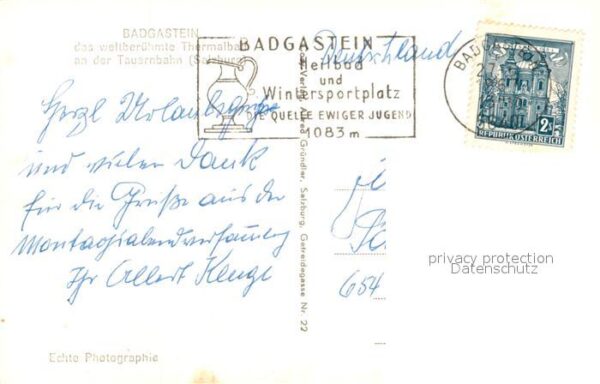 BADGASTEIN
das weltberühmte Thermalbad
an der Tauernbahn (Salzburg)
BADGASTEIN
Heilbad
und
Wintersportplatz
DIE QUELLE EWIGER JUGEND
1083 m
Deutschland
BADGASTEIN
REPUBLIK ÖSTERREICH
Herzl Urlaubsgrüße
und vielen Dank
für die Grüße aus der
Ihr Albert
Gründler, Salzburg, Getreidegasse Nr. 22
654
privacy protection
Datenschutz
Echte Photographie